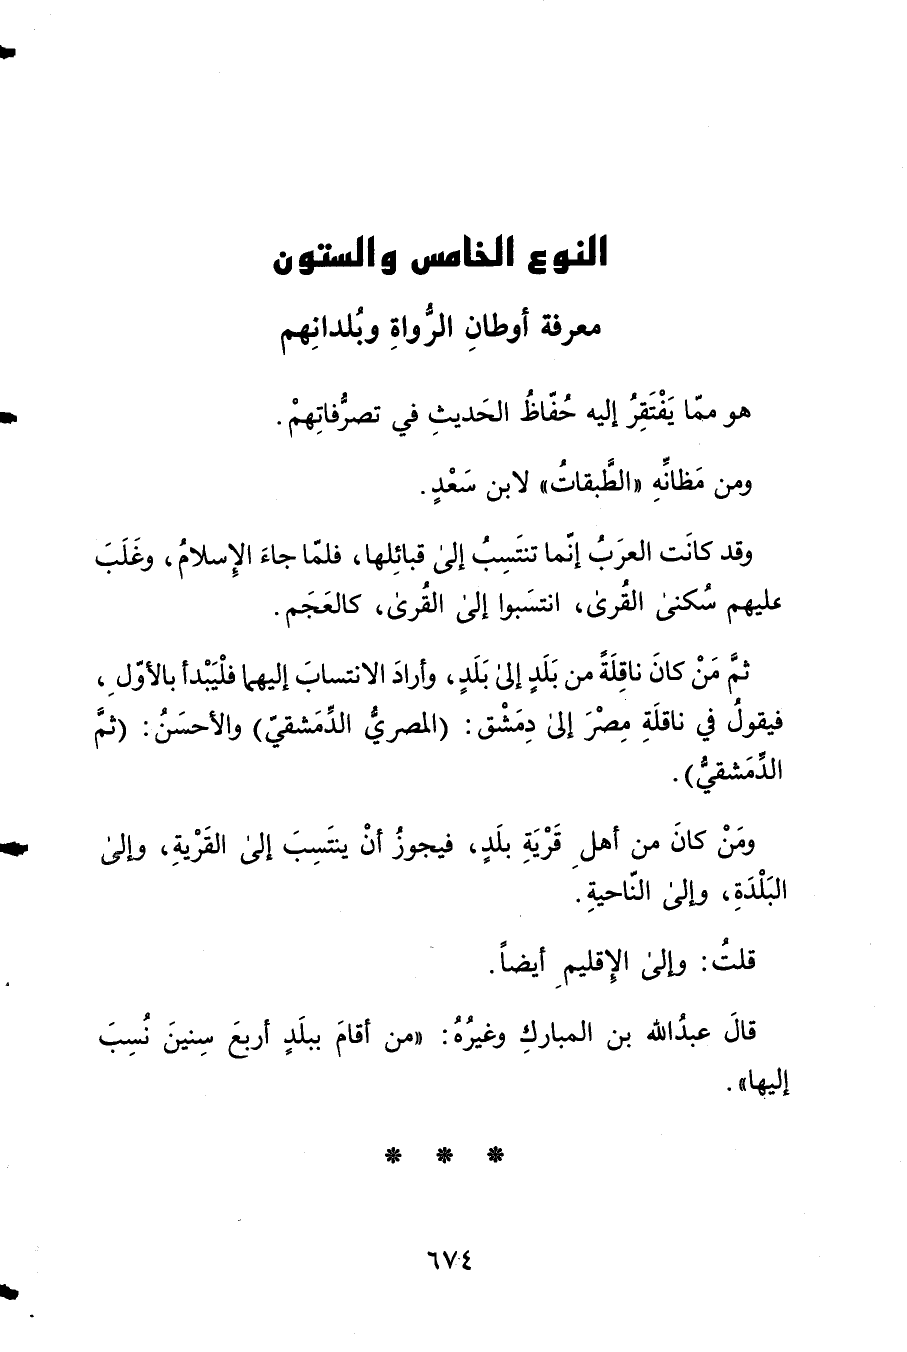 النوع الخامس والستون
معرفة أوطانِ الرُّواةِ وبُلدانِهم
هو ممّا يَفْتَقِرُ إليه حُفّاظُ الحَديثِ في تصرُّفاتِهمْ .
ومن مَظانِّهِ «الطَّبقاتُ» لابن سَعْدٍ .
وقد كانَت العرَبُ إنّما تنتَسِبُ إلىٰ قبائِلها، فلمّا جاءَ الإِسلامُ، وغَلَبَ
عليهم سُكنىٰ القُرىٰ، انتسَبوا إلىٰ القُرىٰ، كالعَجَم .
ثمَّ مَنْ كانَ ناقِلَةً من بَلَدٍ إلىٰ بَلَدٍ، وأرادَ الانتسابَ إليهما فلْيَبْدأ بالأوّلِ ،
فيقولُ في ناقلَةِ مِصْرَ إلىٰ دِمَشْق : (المصريُّ الدِّمَشقيّ) والأحسَنُ : (ثمَّ
الدِّمَشقيُّ) .
ومَنْ كانَ من أهلِ قَرْيَةِ بلَدٍ، فيجوزُ أنْ ينتَسِبَ إلىٰ القَرْيةِ، وإلىٰ
البَلْدَةِ، وإلىٰ النّاحيةِ .
قلتُ : وإلىٰ الإِقليمِ أيضاً .
قالَ عبدُالله بن المباركِ وغيرُهُ : «من أقامَ ببلَدٍ أربعَ سِنينَ نُسِبَ
إليها» .
* * *
٦٧٤